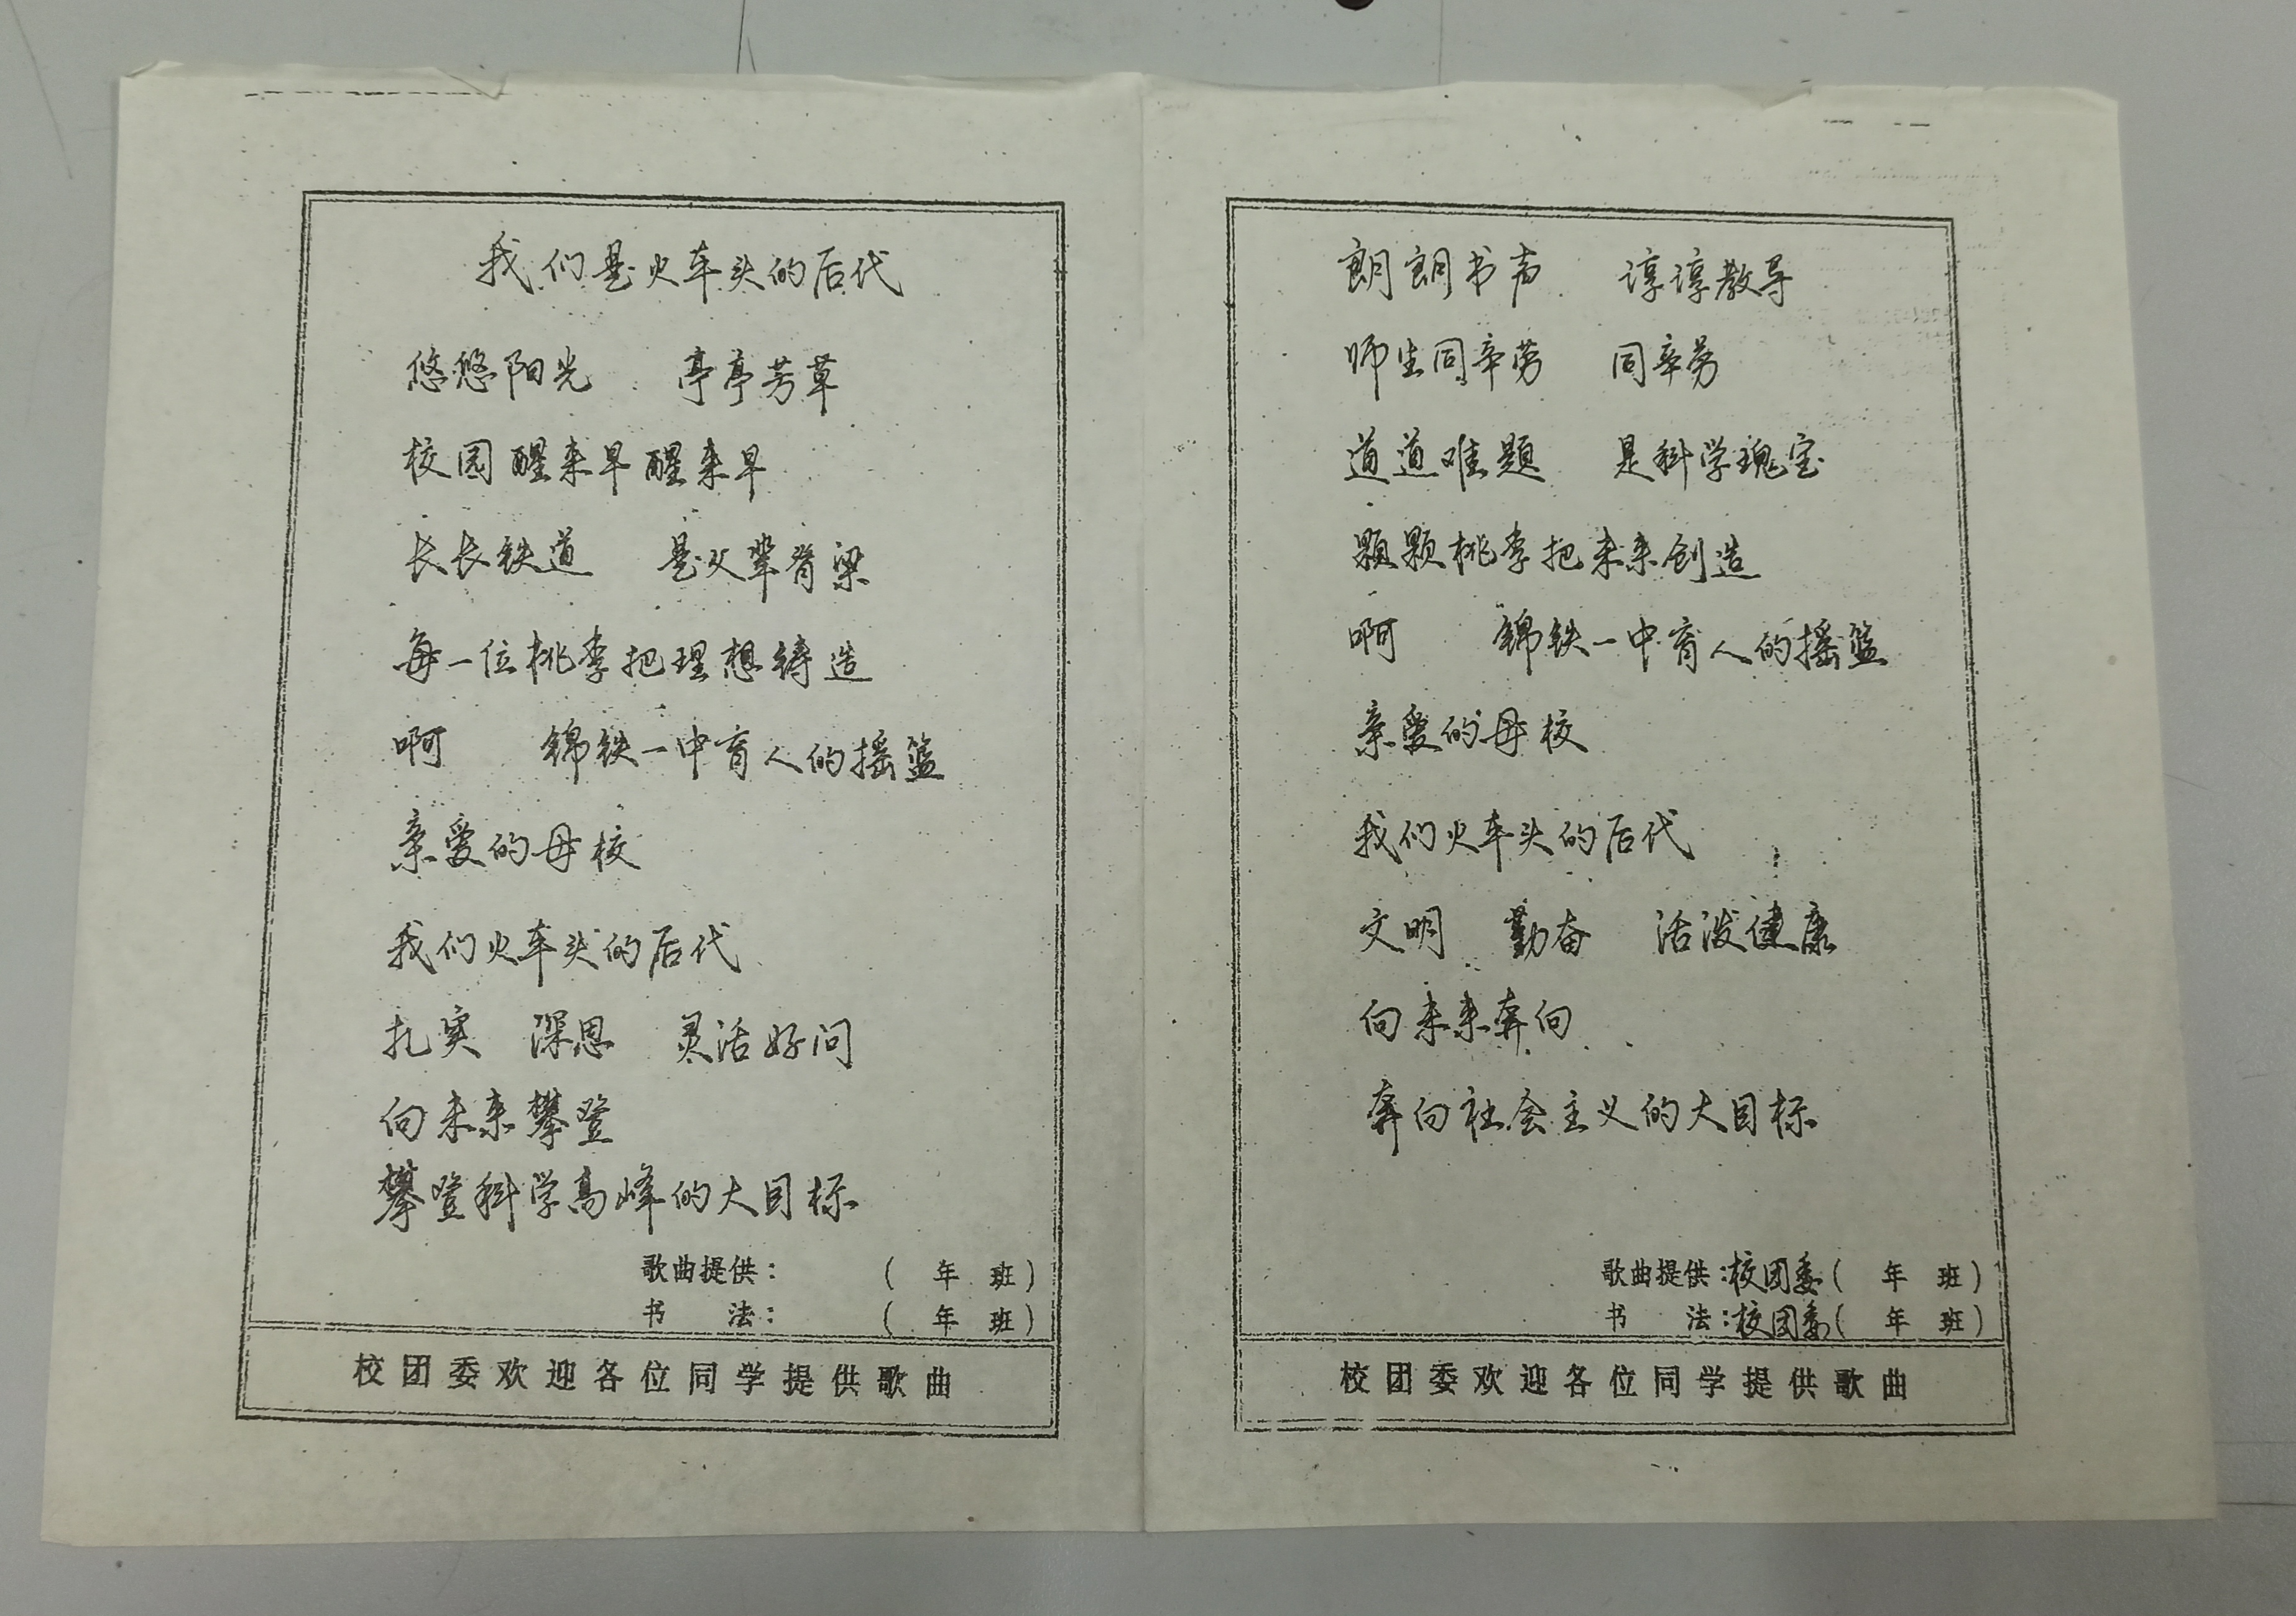 我们是火车头的后代
悠悠阳光 亭亭芳草
校园醒来早醒来早
长长铁道 是父辈脊梁
每一位桃李把理想铸造
啊 锦铁一中育人的摇篮
亲爱的母校
我们火车头的后代
扎实 深思 灵活好问
向未来攀登
攀登科学高峰的大目标
歌曲提供： （ 年 班）
书 法： （ 年 班）
校团委欢迎各位同学提供歌曲
朗朗书声 谆谆教导
师生同辛劳 同辛劳
道道难题 是科学瑰宝
颗颗桃李把未来创造
啊 锦铁一中育人的摇篮
亲爱的母校
我们火车头的后代
文明 勤奋 活泼健康
向未来奔向
奔向社会主义的大目标
歌曲提供：校团委（ 年 班）
书 法：校团委（ 年 班）
校团委欢迎各位同学提供歌曲